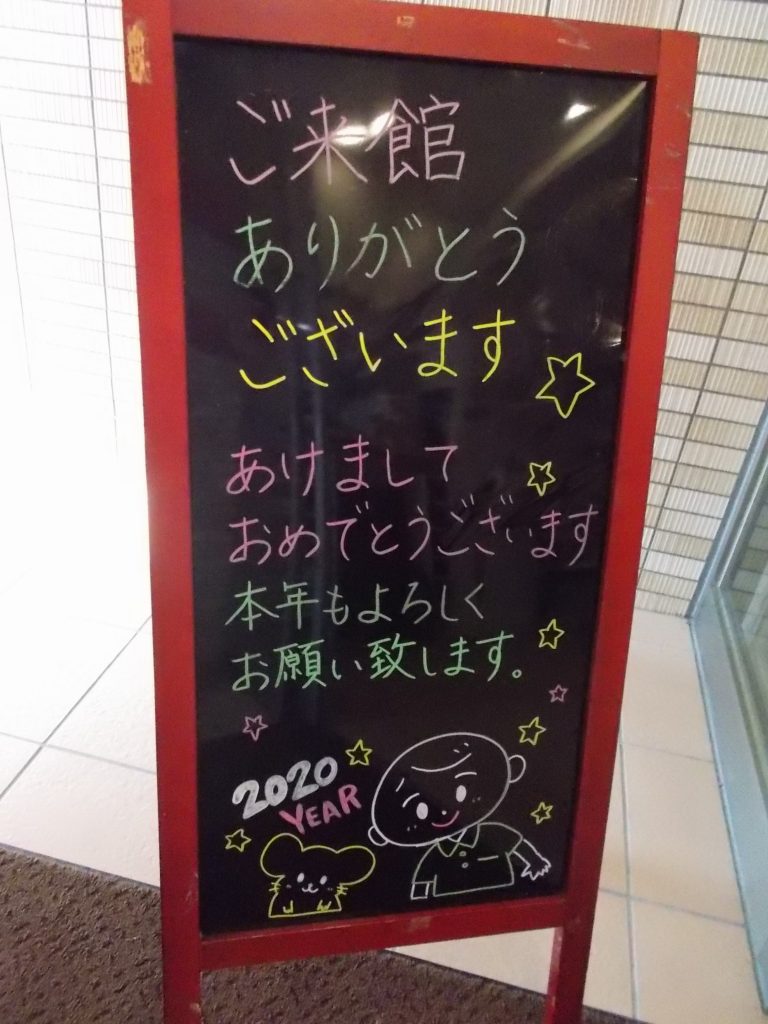 ご来館
ありがとう
ございます
あけまして
おめでとうございます
本年もよろしく
お願い致します。
2020
YEAR